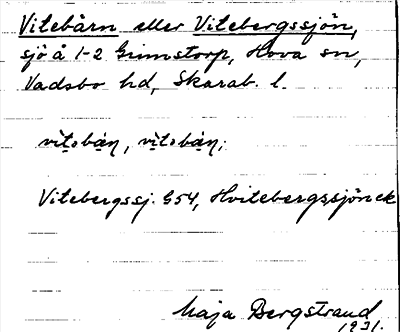 Vitebårn eller Vitebergssjön,
sjö å 1-2 Grimstorp, Hova sn,
Vadsbo hd, Skarab. l.
vìtobán, vìtobán;
Vitebergssj. G54, Hvitebergssjön ek
Maja Bergstrand
1931.